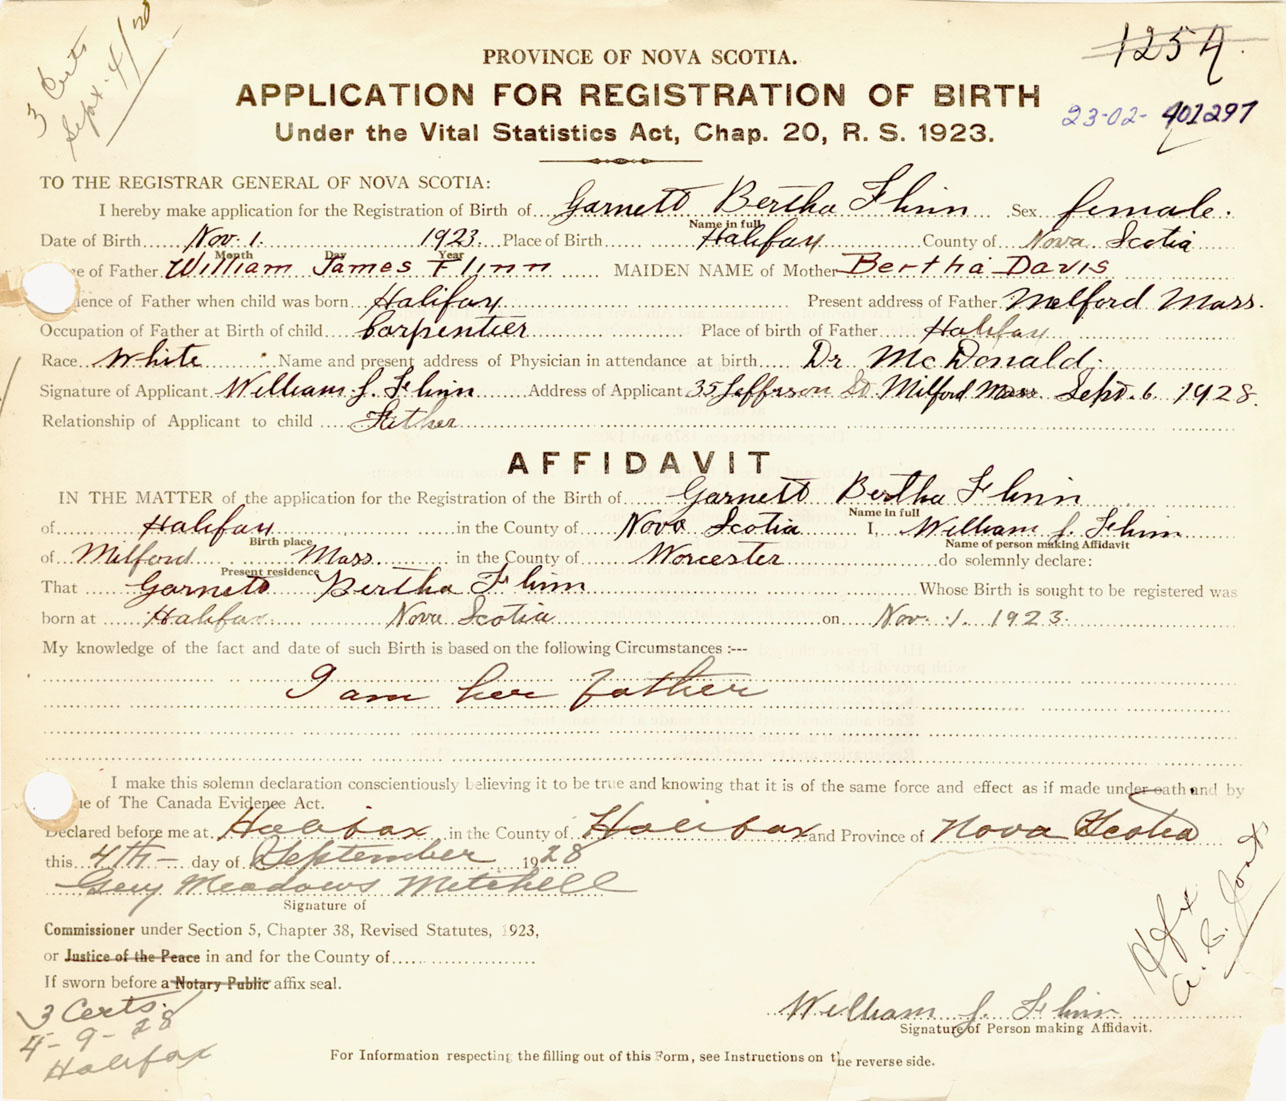 3 Certs
Sept. 4/28
1254
PROVINCE OF NOVA SCOTIA.
APPLICATION FOR REGISTRATION OF BIRTH
23-02- 401297
Under the Vital Statistics Act, Chap. 20, R. S. 1923.
TO THE REGISTRAR GENERAL OF NOVA SCOTIA:
I hereby make application for the Registration of Birth of Garnett Bertha Flinn Sex female.
Name in full
Date of Birth Nov 1 1923 Place of Birth Halifax County of Nova Scotia
Month Day Year
e of Father William James Flinn MAIDEN NAME of Mother Bertha Davis
ence of Father when child was born Halifax Present address of Father Melford Mass.
Occupation of Father at Birth of child Carpentier Place of birth of Father Halifax
Race White Name and present address of Physician in attendance at birth Dr McDonald.
Signature of Applicant William J. Flinn Address of Applicant 35 Jefferson St. Milford Mass. Sept. 6 1928.
Relationship of Applicant to child Father
AFFIDAVIT
IN THE MATTER of the application for the Registration of the Birth of Garnett Bertha Flinn
Name in full
of Halifax in the County of Nova Scotia I, William J. Flinn
Birth place Name of person making Affidavit
of Milford Mass in the County of Worcester do solemnly declare:
Present residence
That Garnett Bertha Flinn Whose Birth is sought to be registered was
born at Halifax Nova Scotia on Nov. 1. 1923.
My knowledge of the fact and date of such Birth is based on the following Circumstances :---
I am her father
I make this solemn declaration conscientiously believing it to be true and knowing that it is of the same force and effect as if made under oath and by
ue of The Canada Evidence Act.
Declared before me at Halifax in the County of Halifax and Province of Nova Scotia
this 4th day of September 1928
Meadows Mitchell
Signature of
Commissioner under Section 5, Chapter 38, Revised Statutes, 1923,
or Justice of the Peace in and for the County of
If sworn before a Notary Public affix seal.
3 Certs.
4-9-28
Halifax
Hfx
William J. Flinn
Signature of Person making Affidavit.
For Information respecting the filling out of this Form, see Instructions on the reverse side.